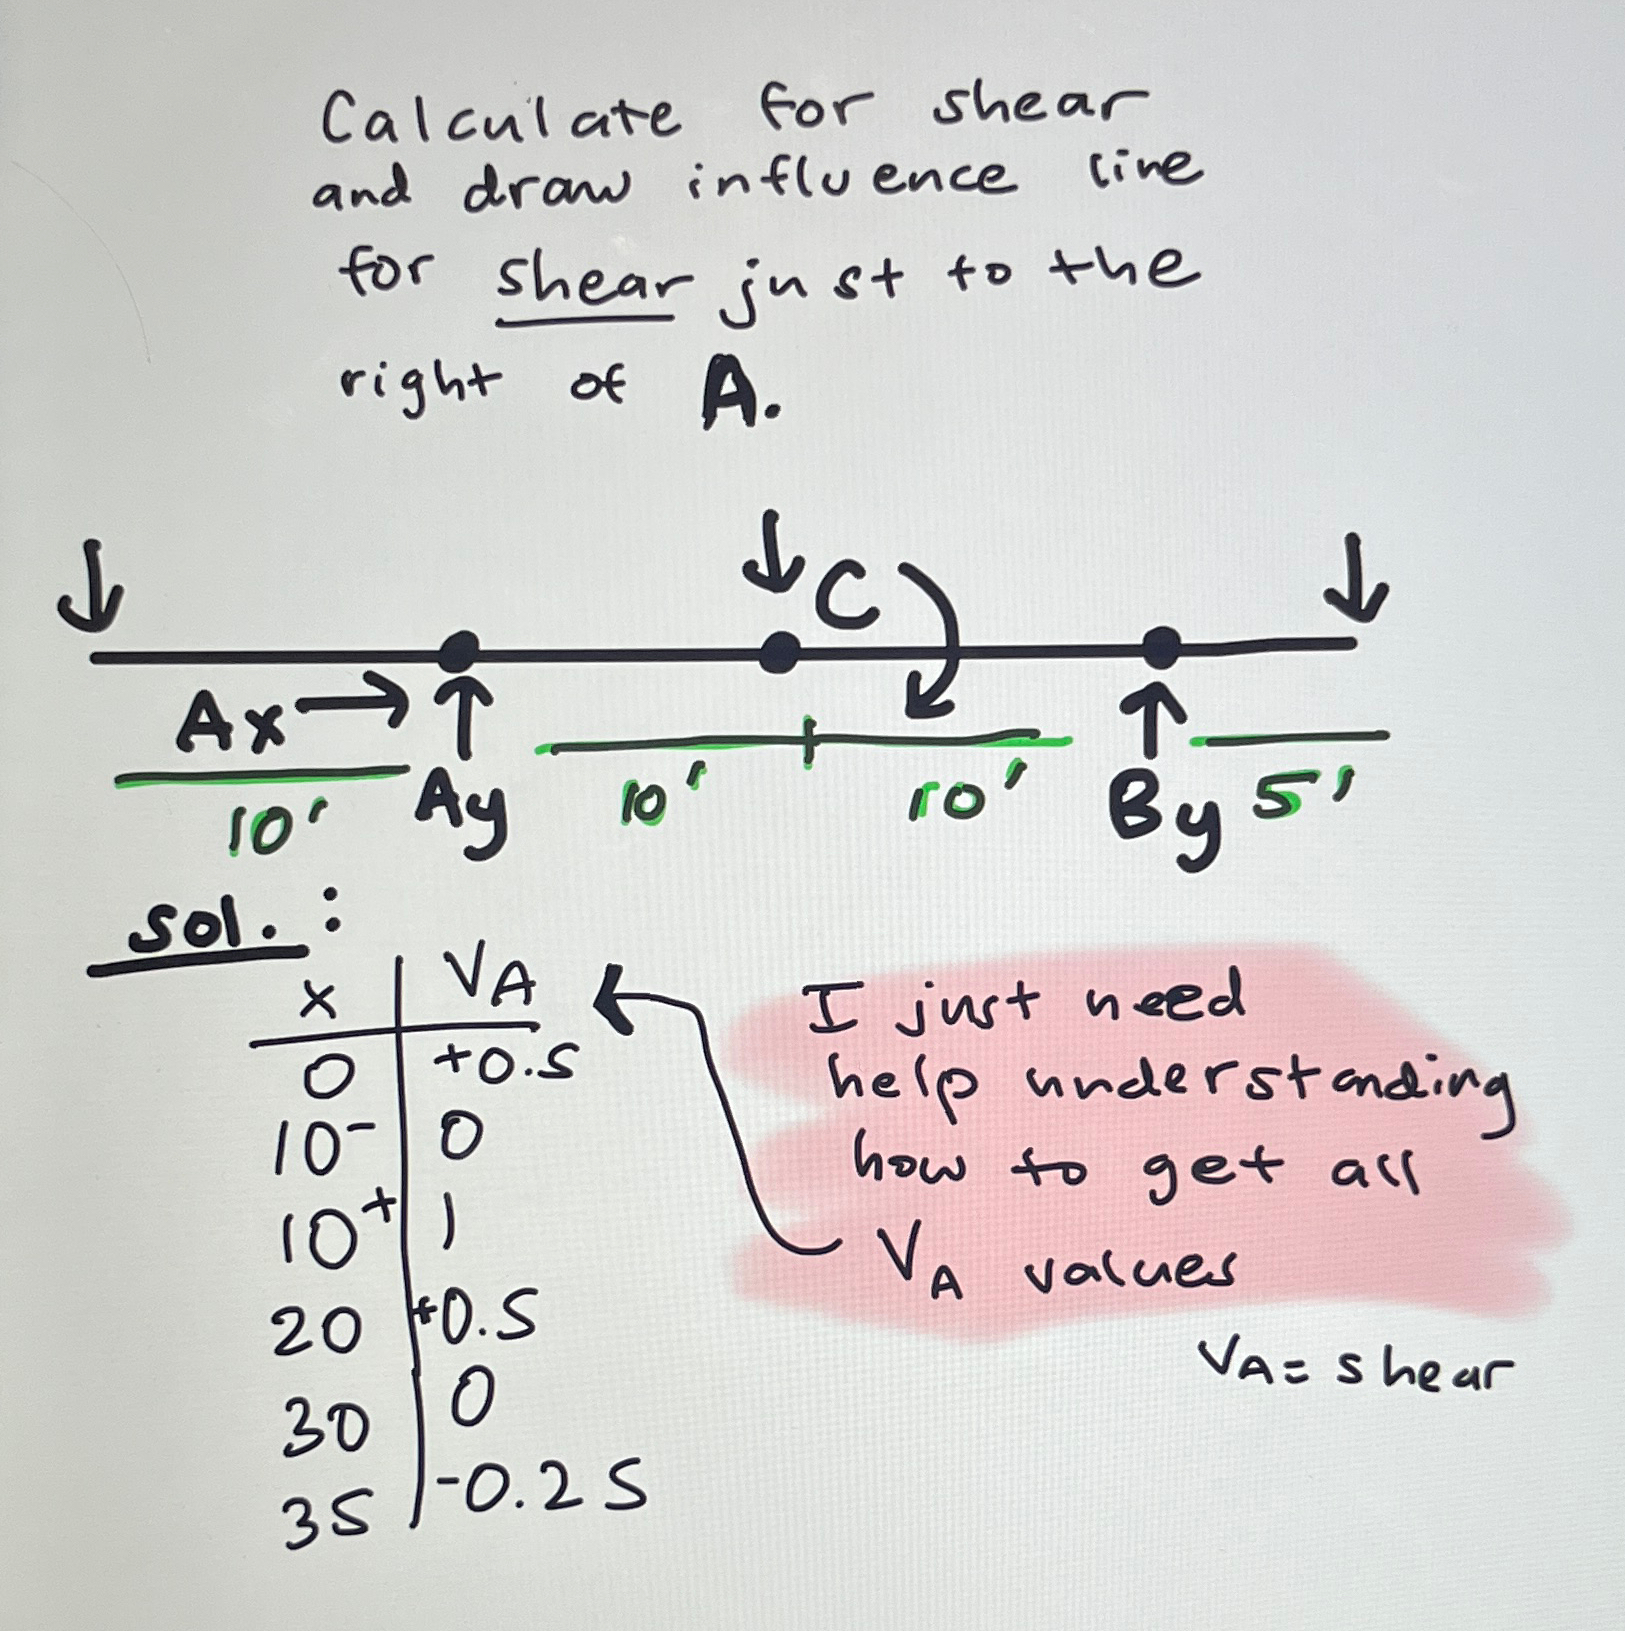 Calculate for shear
and draw influence line
for shear just to the
right of A.
C
Ax
10' Ay 10' 10' By 5'
sol. :
x VA
0 +0.5
10⁻ 0
10⁺ 1
20 +0.5
30 0
35 -0.25
I just need
help understanding
how to get all
VA values
VA = shear